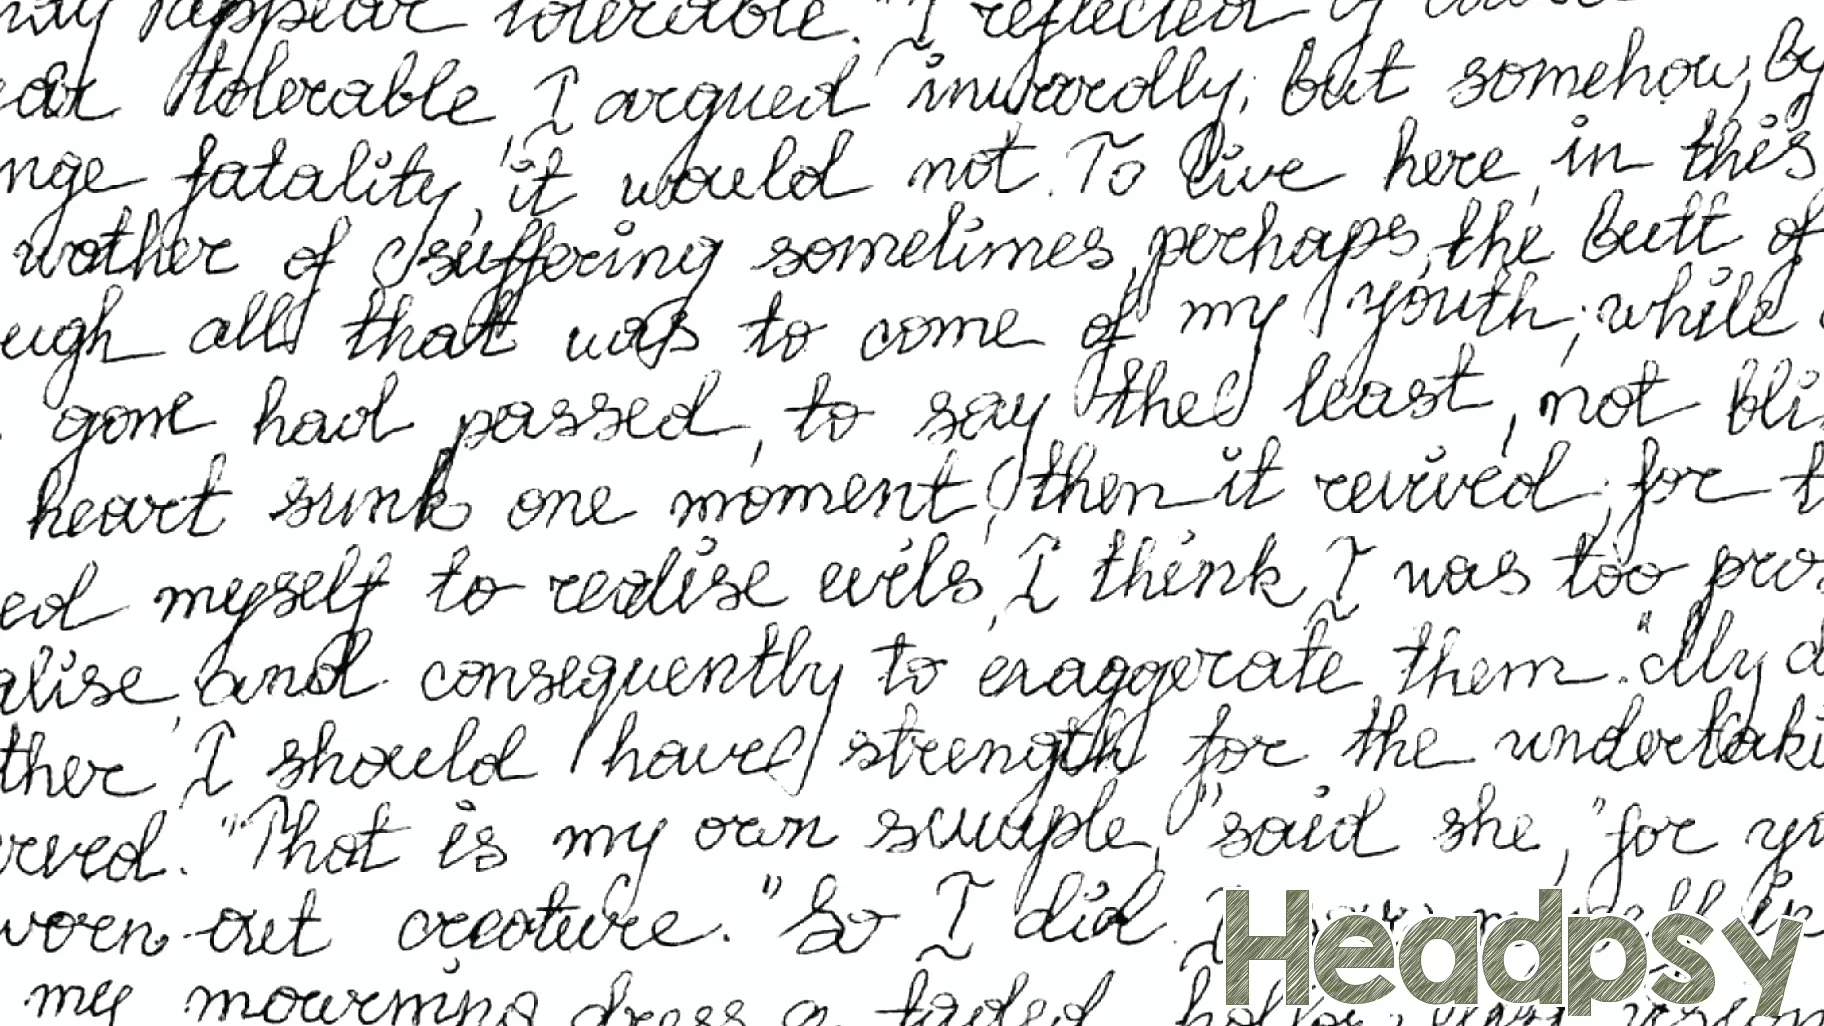 may appear tolerable." I reflected of course
ear tolerable, I argued inwardly; but somehow, by
nge fatality, it would not. To live here, in this
wather of suffering sometimes, perhaps, the butt of
ough all that was to come of my youth; while
gone had passed, to say the least, not bli
heart sunk one moment, then it revived; for t
ed myself to realise evils, I think I was too pros
alise, and consequently to exaggerate them. "My d
ther I should have strength for the undertaki
erved. "That is my own scruple," said she, "for yo
worn-out creature." So I did. I
my mourning dress, a faded hollow-eyed vision
Headpsy